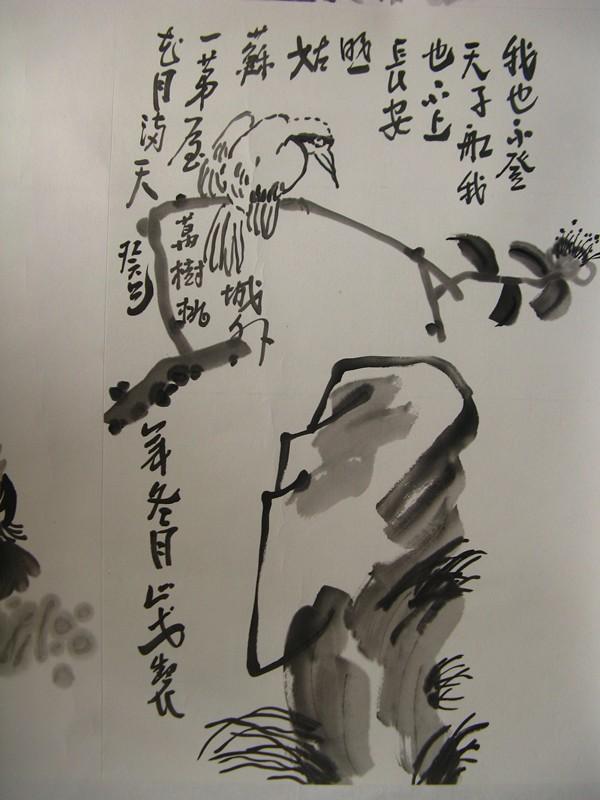 我也不登
天子船我
也不上
長安
眠
姑
蘇
城外
一茅屋
萬樹桃
花月滿天
癸巳
年冬月製